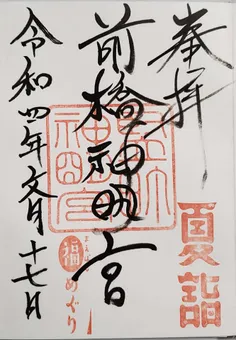 奉拝
夏詣
前橋神明宮
福めぐり
令和四年文月十七日